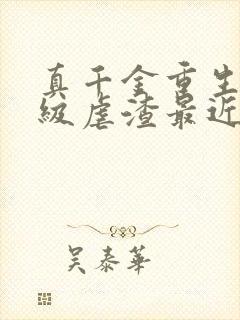 真千金重生
级虐渣最近
吴泰華